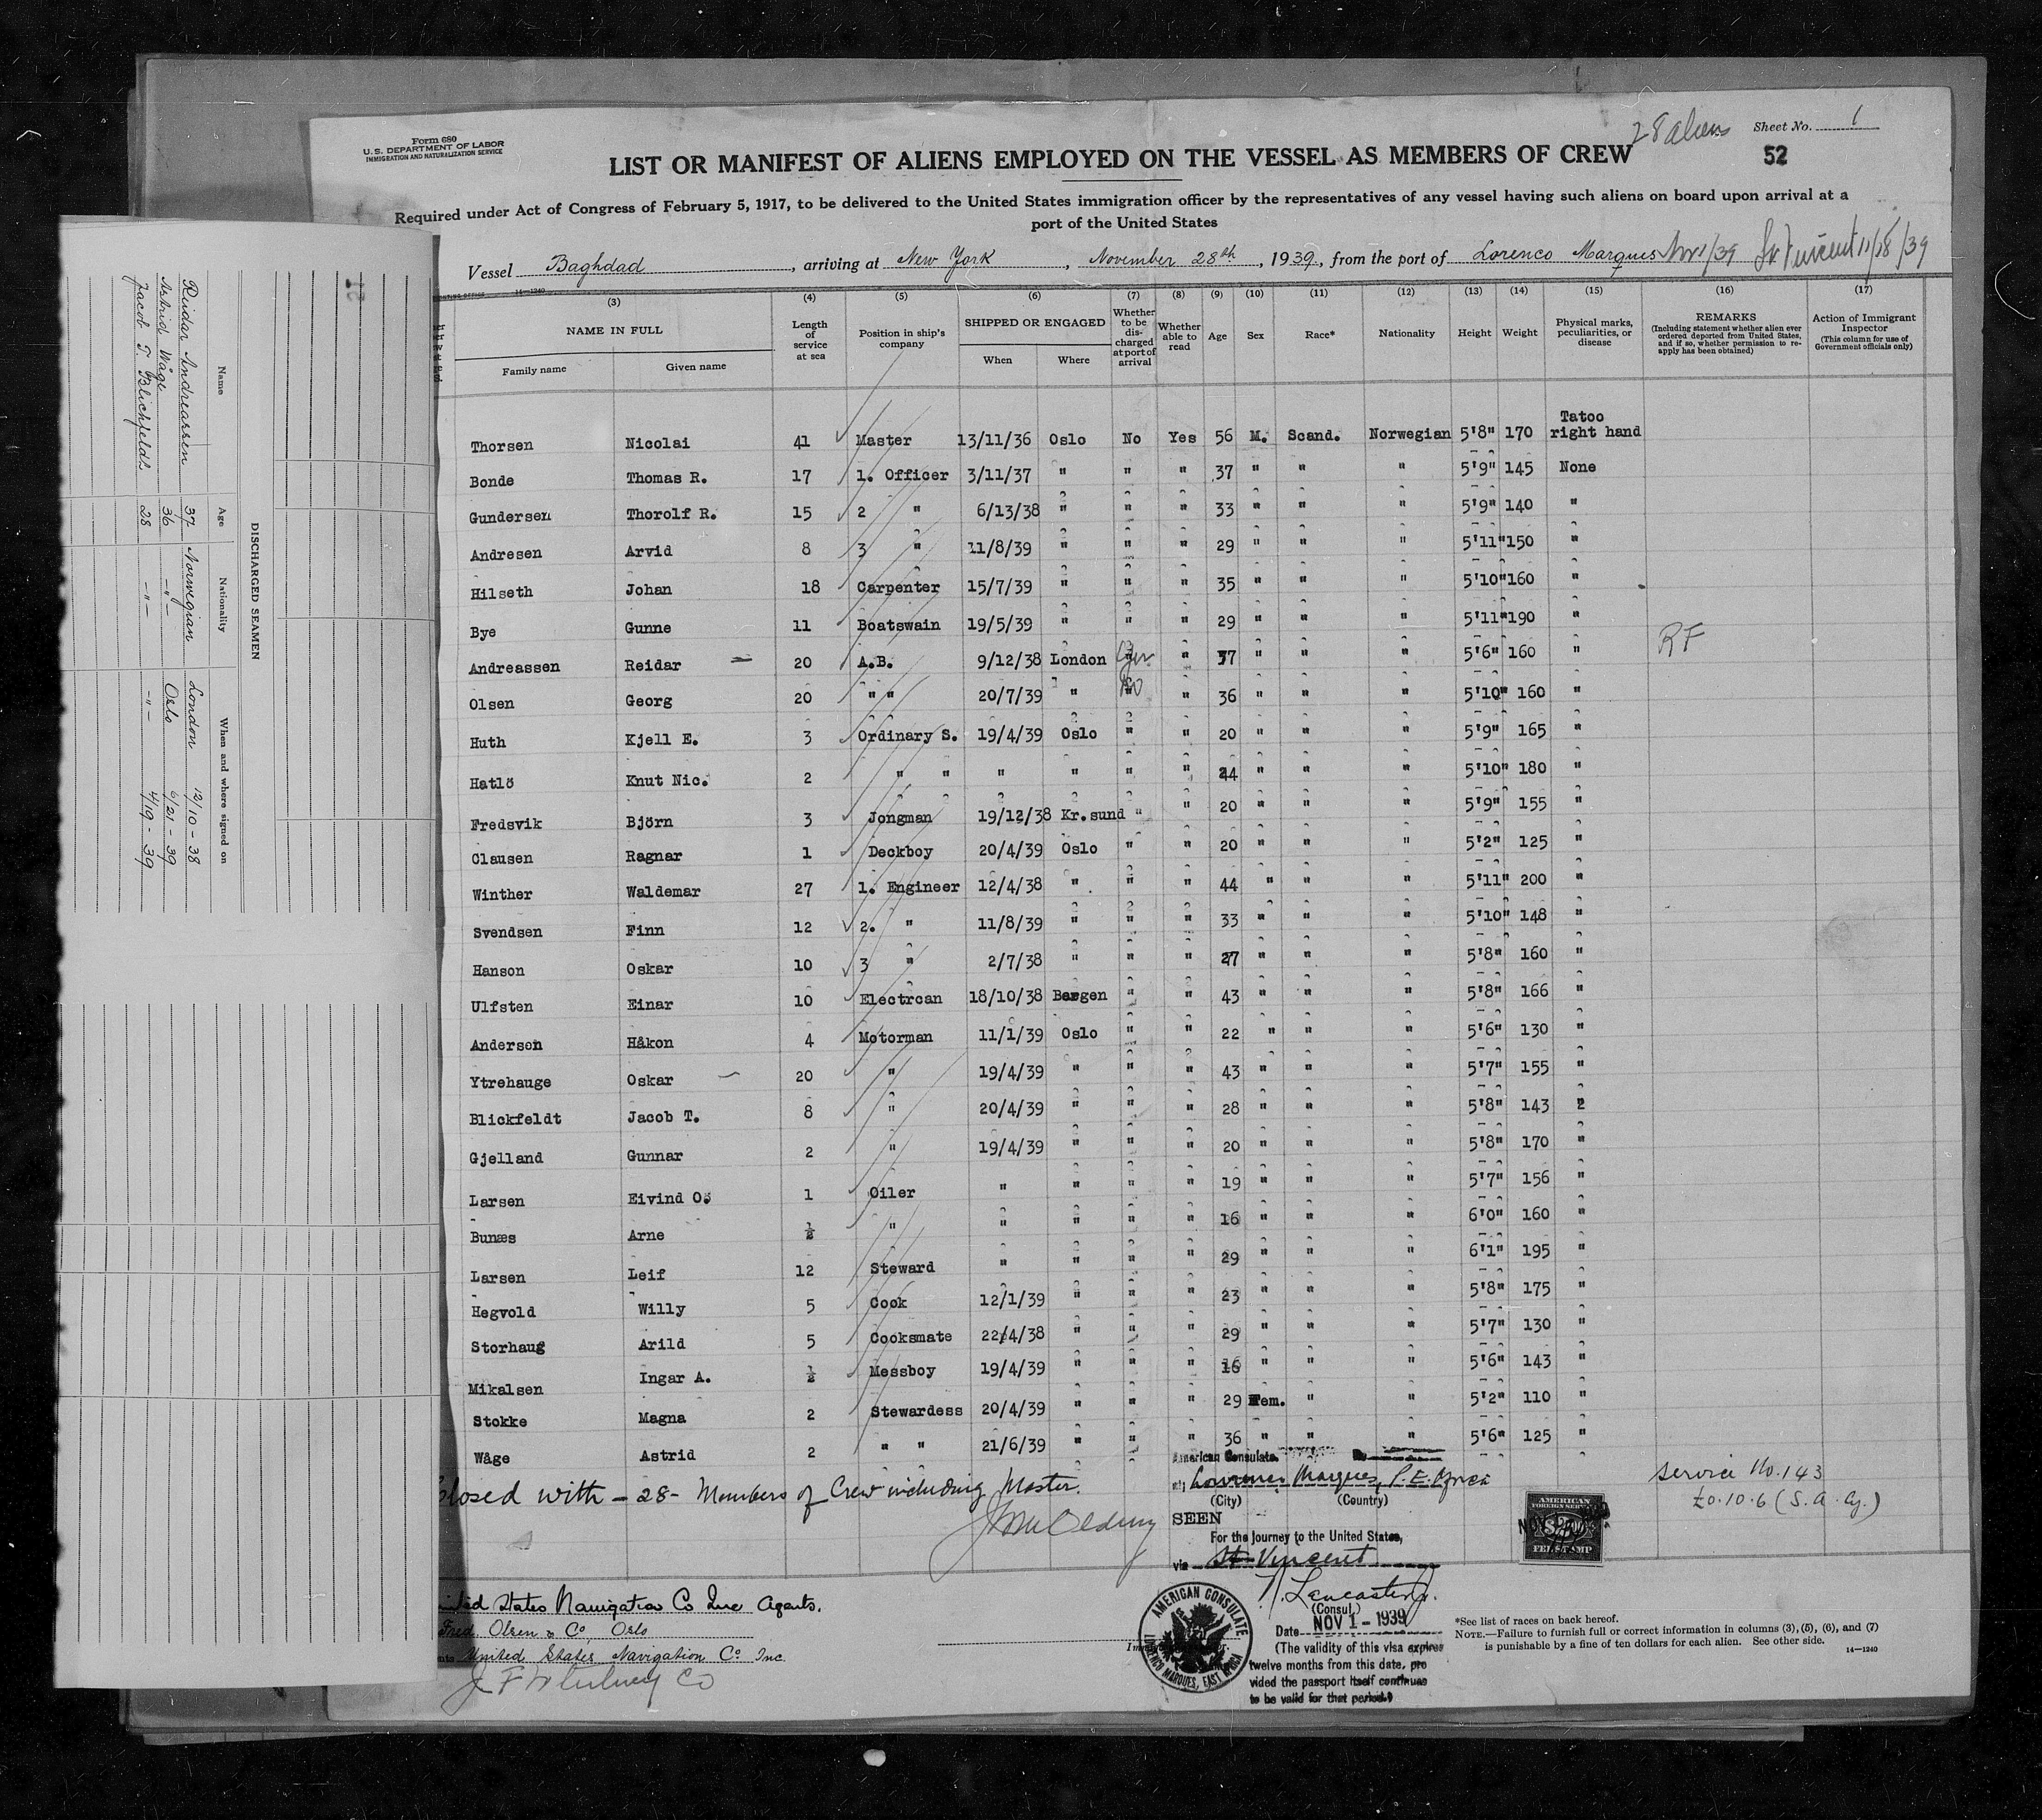 Form 680
U.S. DEPARTMENT OF LABOR
IMMIGRATION AND NATURALIZATION SERVICE
28 aliens
Sheet No. 1
52
LIST OR MANIFEST OF ALIENS EMPLOYED ON THE VESSEL AS MEMBERS OF CREW
Required under Act of Congress of February 5, 1917, to be delivered to the United States immigration officer by the representatives of any vessel having such aliens on board upon arrival at a
port of the United States
Vessel Baghdad, arriving at New York, November 28th, 1939, from the port of Lorenco Marques Nov 1/39 St Vincent 11/18/39
14—1240
(3) (4) (5) (6) (7) (8) (9) (10) (11) (12) (13) (14) (15) (16) (17)
NAME IN FULL
Family name
Given name
Length of service at sea
Position in ship's company
SHIPPED OR ENGAGED
When
Where
Whether to be discharged at port of arrival
Whether able to read
Age
Sex
Race*
Nationality
Height
Weight
Physical marks, peculiarities, or disease
REMARKS
(Including statement whether alien ever ordered deported from United States, and if so, whether permission to reapply has been obtained)
Action of Immigrant Inspector
(This column for use of Government officials only)
Thorsen Nicolai 41 Master 13/11/36 Oslo No Yes 56 M. Scand. Norwegian 5'8" 170 Tatoo right hand
Bonde Thomas R. 17 1. Officer 3/11/37 " " " 37 " " " 5'9" 145 None
Gundersen Thorolf R. 15 2 " 6/13/38 " " " 33 " " " 5'9" 140 "
Andresen Arvid 8 3 " 11/8/39 " " " 29 " " " 5'11" 150 "
Hilseth Johan 18 Carpenter 15/7/39 " " " 35 " " " 5'10" 160 "
Bye Gunne 11 Boatswain 19/5/39 " " " 29 " " " 5'11" 190 "
Andreassen Reidar 20 A.B. 9/12/38 London " 37 " " " 5'6" 160 " RF
Olsen Georg 20 " " 20/7/39 " No " 36 " " " 5'10" 160 "
Huth Kjell E. 3 Ordinary S. 19/4/39 Oslo " " 20 " " " 5'9" 165 "
Hatlö Knut Nic. 2 " " " " " " 24 " " " 5'10" 180 "
Fredsvik Björn 3 Jongman 19/12/38 Kr.sund " " 20 " " " 5'9" 155 "
Clausen Ragnar 1 Deckboy 20/4/39 Oslo " " 20 " " " 5'2" 125 "
Winther Waldemar 27 1. Engineer 12/4/38 " " " 44 " " " 5'11" 200 "
Svendsen Finn 12 2. " 11/8/39 " " " 33 " " " 5'10" 148 "
Hanson Oskar 10 3 " 2/7/38 " " " 27 " " " 5'8" 160 "
Ulfsten Einar 10 Electrcan 18/10/38 Bergen " " 43 " " " 5'8" 166 "
Anderson Håkon 4 Motorman 11/1/39 Oslo " " 22 " " " 5'6" 130 "
Ytrehauge Oskar 20 " 19/4/39 " " " 43 " " " 5'7" 155 "
Blickfeldt Jacob T. 8 " 20/4/39 " " " 28 " " " 5'8" 143 "
Gjelland Gunnar 2 " 19/4/39 " " " 20 " " " 5'8" 170 "
Larsen Eivind O. 1 Oiler " " " " 19 " " " 5'7" 156 "
Bunæs Arne ½ " " " " " 16 " " " 6'0" 160 "
Larsen Leif 12 Steward " " " " 29 " " " 6'1" 195 "
Hegvold Willy 5 Cook 12/1/39 " " " 23 " " " 5'8" 175 "
Storhaug Arild 5 Cooksmate 22/4/38 " " " 29 " " " 5'7" 130 "
Mikalsen Ingar A. ½ Messboy 19/4/39 " " " 16 " " " 5'6" 143 "
Stokke Magna 2 Stewardess 20/4/39 " " " 29 Fem. " " 5'2" 110 "
Wåge Astrid 2 " " 21/6/39 " " " 36 " " " 5'6" 125 "
closed with - 28 - Members of Crew including Master.
American Consulate
Lourenco Marques, P.E. Africa
(City) (Country)
SEEN
For the journey to the United States,
via St. Vincent
(Consul)
Date NOV 1 - 1939
(The validity of this visa expires
twelve months from this date, pro
vided the passport itself continues
to be valid for that period.)
AMERICAN CONSULATE
LOURENCO MARQUES, EAST AFRICA
Service No. 143
£0.10.6 (S.A. Cy.)
AMERICAN
FOREIGN SERVICE
FEE STAMP
United States Navigation Co Inc Agents.
Fred. Olsen & Co, Oslo
United States Navigation Co. Inc.
J F Whitney Co
*See list of races on back hereof.
NOTE.—Failure to furnish full or correct information in columns (3), (5), (6), and (7)
is punishable by a fine of ten dollars for each alien. See other side.
14—1240
DISCHARGED SEAMEN
Name Age Nationality When and where signed on
Reidar Andreassen 37 Norwegian London 12/10-38
Astrid Wåge 36 -"- Oslo 6/21-39
Jacob T. Blichfeldt 28 -"- -"- 4/19-39